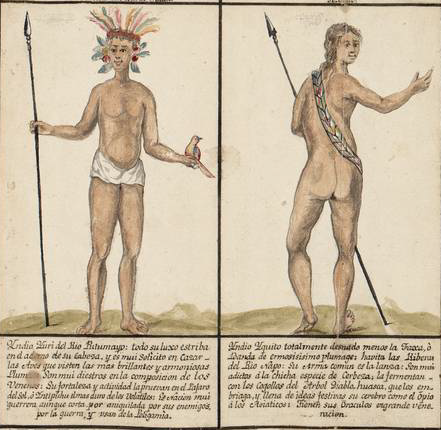 Yndio Yuri del Rio Putumayo: todo su luxo estriba
en el adorno de su Cabeza, y es mui solicito en Cazar
las Aves que visten las mas brillantes y armoniosas
Plumas. Son mui diestros en la composicion de los
Venenos. Su fortaleza y actividad la prueban en el Pajaro
del Sol, ó Yntiplshu el mas duro de los Volatiles. Es Nacion mui
guerrera, aunque corta, por aniquilada por sus enemigos,
por la guerra, y usan de la Poligamia.
Yndio Yquito totalmente desnudo menos la Faxa, ó
Banda de ermosisimo plumage: havita las Riberas
del Rio Napo: Su Arma comun es la lanza: Son mui
adictos á la Chicha, especie de Cerbeza, la fermentan
con los Cogollos del Arbol Diablo, huasca, que los em
briaga, y llena de ideas festivas su cerebro como el Opio
á los Asiaticos: Tienen sus Oraculos en grande vene
racion.